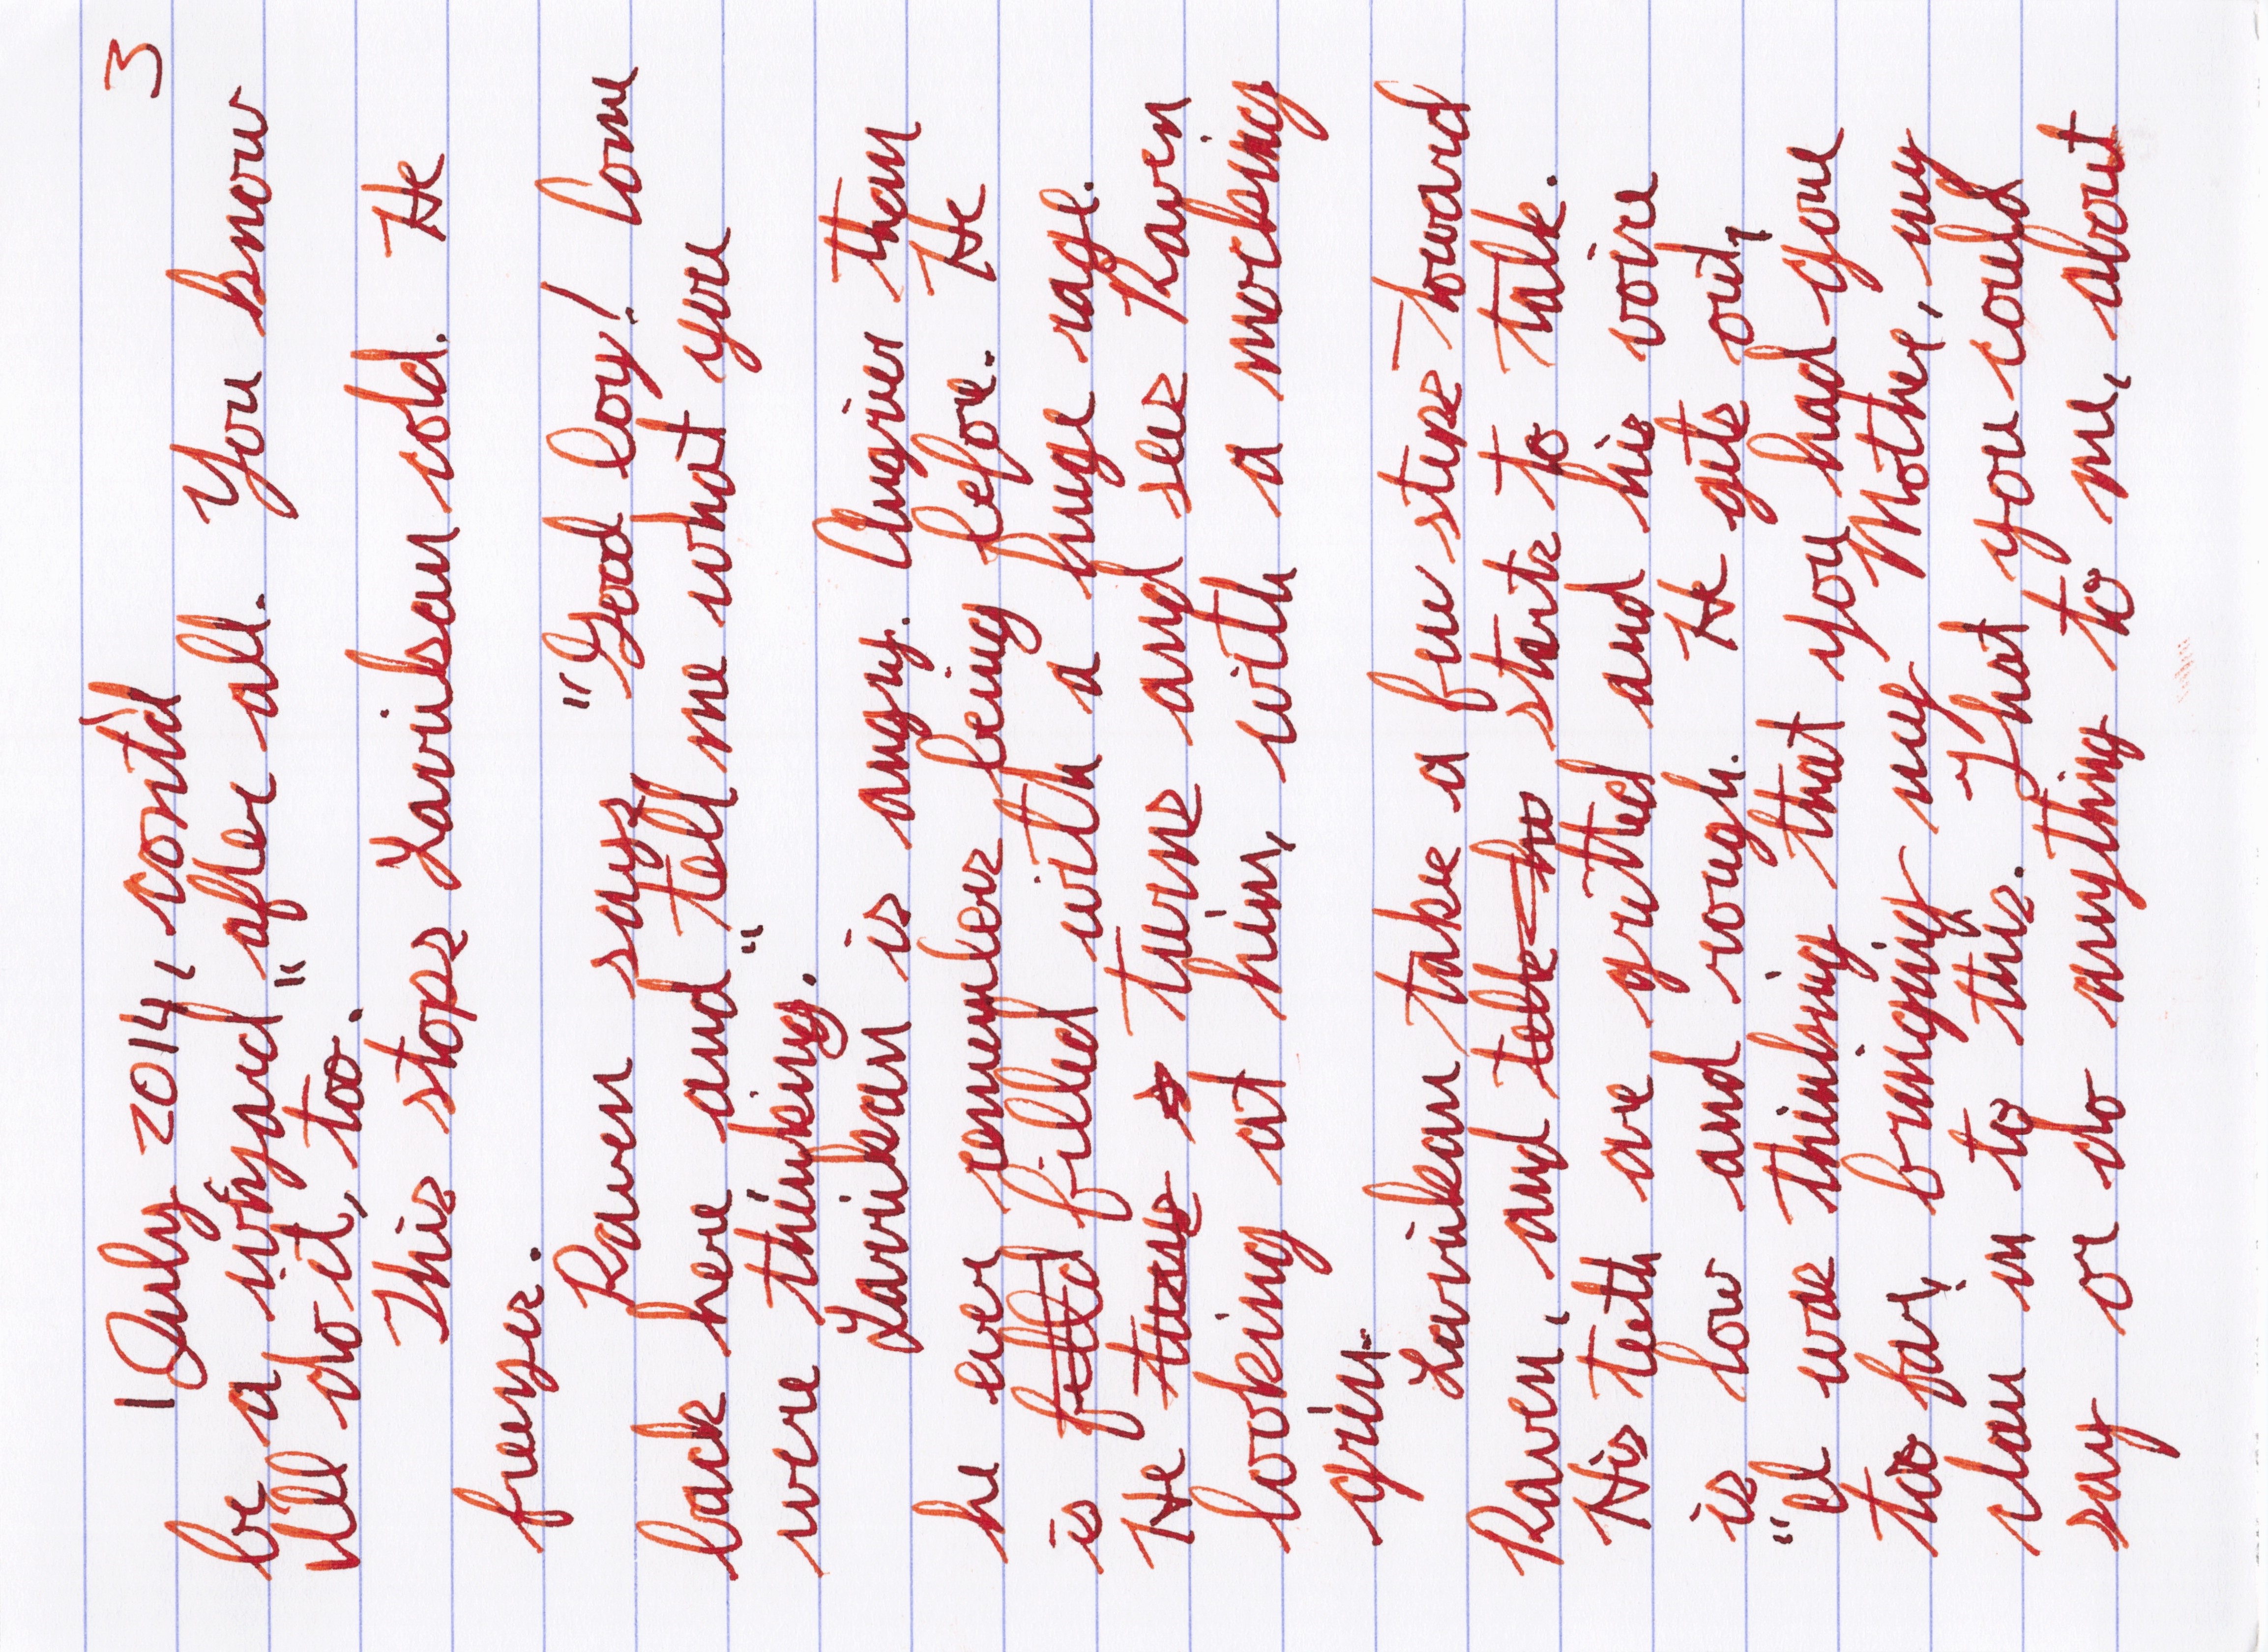 1 July 2014, cont'd 3
be a wizard after all. You know
I'll do it, too."
This stops Lariksan cold. He
freezes.
Raven says "Good boy! Come
back here and tell me what you
were thinking."
Larikan is angry. Angrier than
he ever remembers being before. He
is filled filled with a huge rage.
He turns turns and sees Raven
looking at him, with a mocking
grin.
Larikan take a few steps toward
Raven, and starts to talk.
His teeth are gritted and his voice
is low and rough. He gets out,
"I was thinking that you had gone
too far, bringing my Mother, my
clan in to this. That you could
say or do anything to me, about